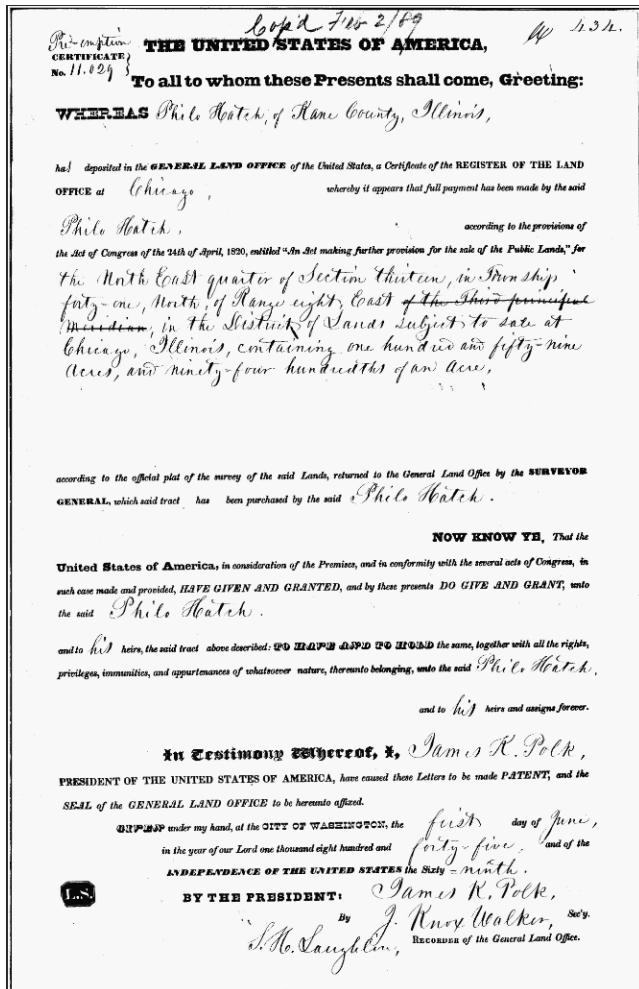 Cop'd Feb 2/89
434.
Pre-emption
CERTIFICATE
No. 11.029
THE UNITED STATES OF AMERICA,
To all to whom these Presents shall come, Greeting:
WHEREAS Philo Hatch, of Kane County, Illinois,
ha deposited in the GENERAL LAND OFFICE of the United States, a Certificate of the REGISTER OF THE LAND
OFFICE at Chicago, whereby it appears that full payment has been made by the said
Philo Hatch, according to the provisions of
the Act of Congress of the 24th of April, 1820, entitled "An Act making further provision for the sale of the Public Lands," for
the North East quarter of Section thirteen, in Township
forty-one, North, of Range eight, East of the Third principal
Meridian, in the District of Lands subject to sale at
Chicago, Illinois, containing one hundred and fifty-nine
Acres, and ninety-four hundredths of an Acre,
according to the official plat of the survey of the said Lands, returned to the General Land Office by the SURVEYOR
GENERAL, which said tract has been purchased by the said Philo Hatch.
NOW KNOW YE, That the
United States of America, in consideration of the Premises, and in conformity with the several acts of Congress, in
such case made and provided, HAVE GIVEN AND GRANTED, and by these presents DO GIVE AND GRANT, unto
the said Philo Hatch.
and to his heirs, the said tract above described: TO HAVE AND TO HOLD the same, together with all the rights,
privileges, immunities, and appurtenances of whatsoever nature, thereunto belonging, unto the said Philo Hatch,
and to his heirs and assigns forever.
In Testimony Whereof, I, James K. Polk,
PRESIDENT OF THE UNITED STATES OF AMERICA, have caused these Letters to be made PATENT, and the
SEAL of the GENERAL LAND OFFICE to be hereunto affixed.
GIVEN under my hand, at the CITY OF WASHINGTON, the first day of June,
in the year of our Lord one thousand eight hundred and forty-five, and of the
INDEPENDENCE OF THE UNITED STATES the Sixty-ninth.
L.S.
BY THE PRESIDENT: James K. Polk,
By J. Knox Walker, Sec'y.
S. H. Laughlin, RECORDER of the General Land Office.